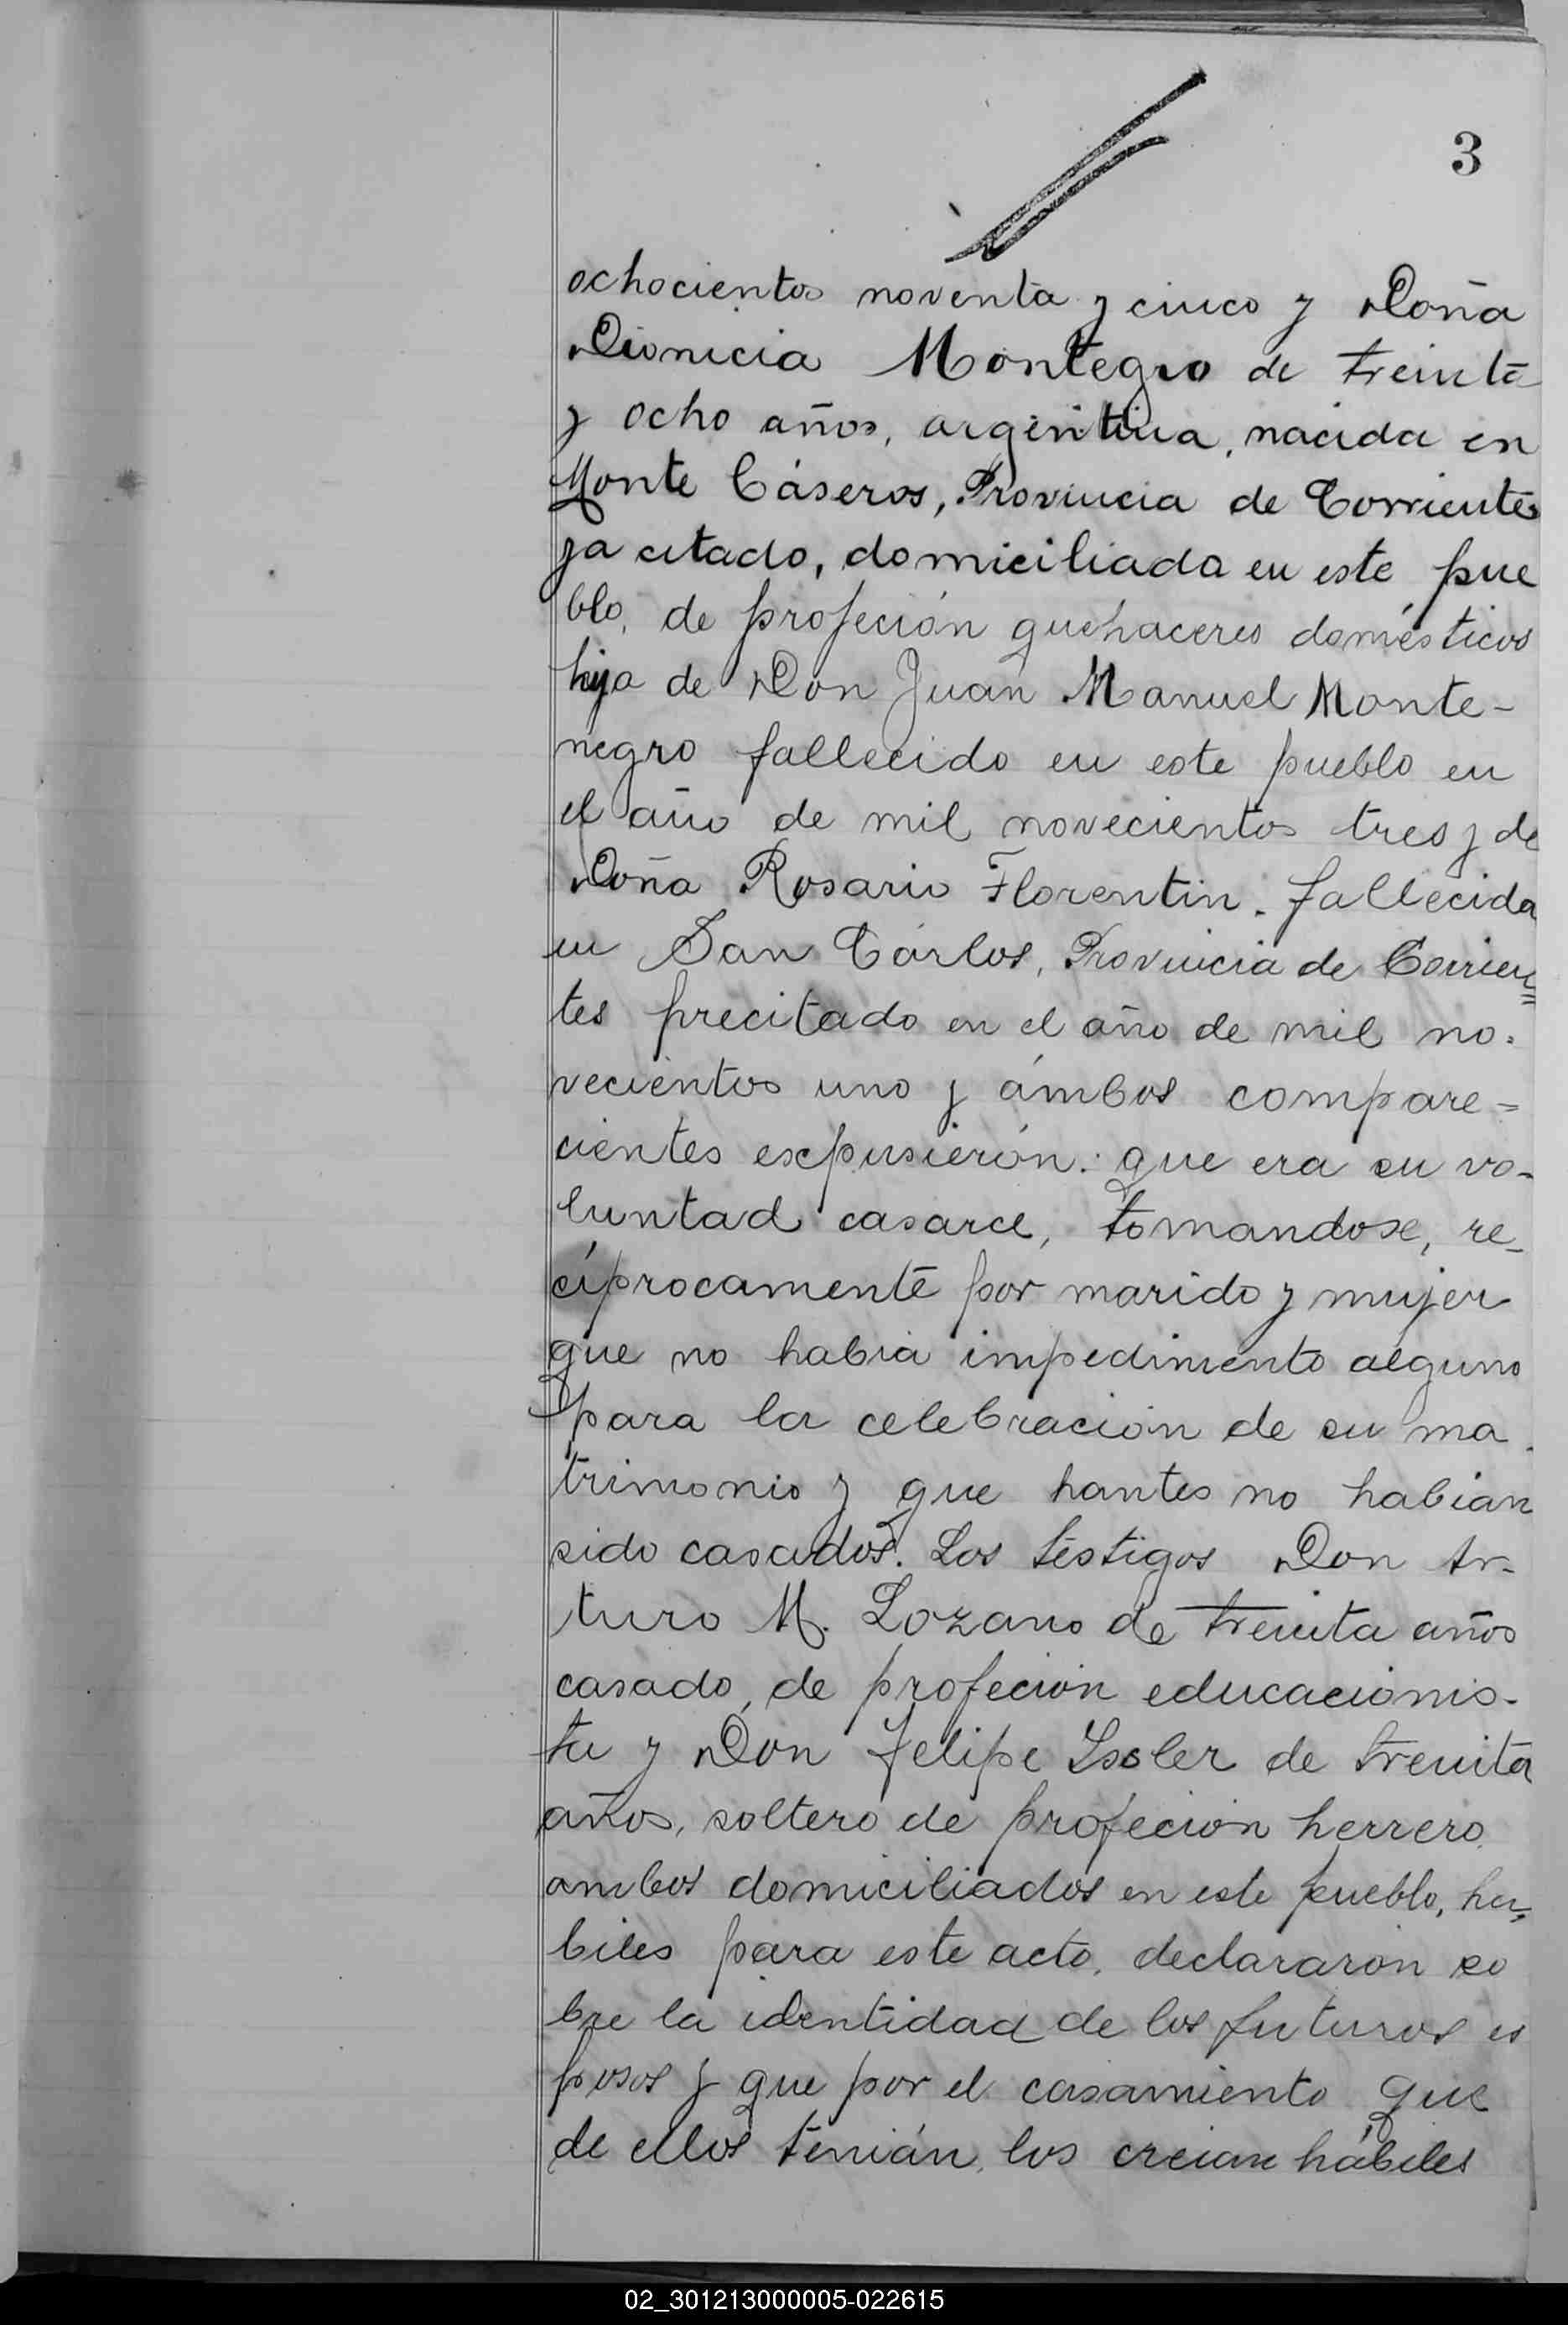 3
ochocientos noventa y cinco y Doña
Dionicia Montegro de treinta
y ocho años, argentina, nacida en
Monte Cáseros, Provincia de Corrientes
ya citado, domiciliada en este pue
blo, de profeción quehaceres domésticos
hija de Don Juan Manuel Monte-
negro fallecido en este pueblo en
el año de mil novecientos tres y de
Doña Rosario Florentin. fallecida
en San Cárlos, Provincia de Corrien=
tes precitado en el año de mil no-
vecientos uno y ámbos compare=
cientes expusierón: que era su vo-
luntad casarce, tomandose, re-
cíprocamente por marido y mujer
que no habia impedimento alguno
para la celebración de su ma-
trimonio y que hantes no habian
sido casados. Los testigos Don Ar-
turo M. Lozano de treinta años
casado, de profeción educacionis-
ta y Don Felipe Issler de treinta
años, soltero de profeción herrero,
ambos domiciliados en este pueblo, ha-
biles para este acto, declararon so
bre la identidad de los futuros es
posos y que por el casamiento que
de ellos tenián, los creian hábiles
02_301213000005-022615